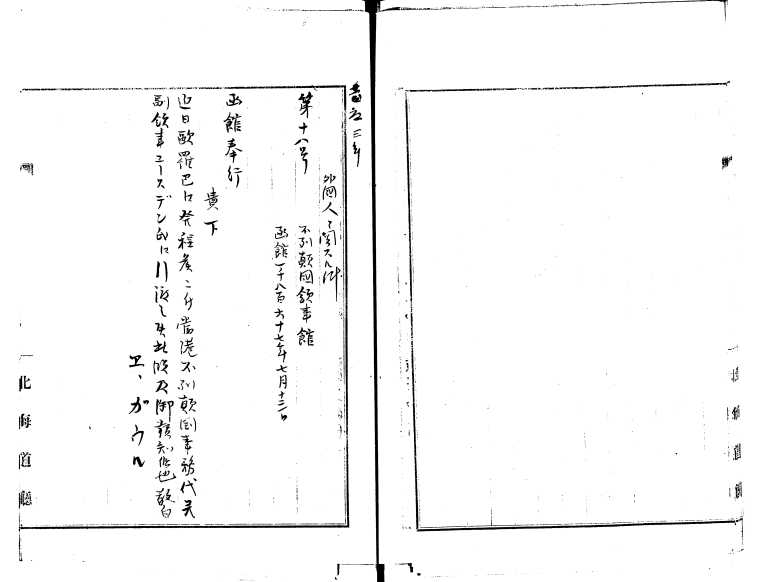 慶応三年
外國人ニ関スル件
第十八号
不列顛國領事館
函館一千八百六十七年七月十三日
函館奉行
貴下
近日歐羅巴ヘ発程候ニ付當港不列顛国事務代天
副領事ユースデン氏ヘ引渡し此段及御報知候也敬白
エ、ガウル
北海道廳